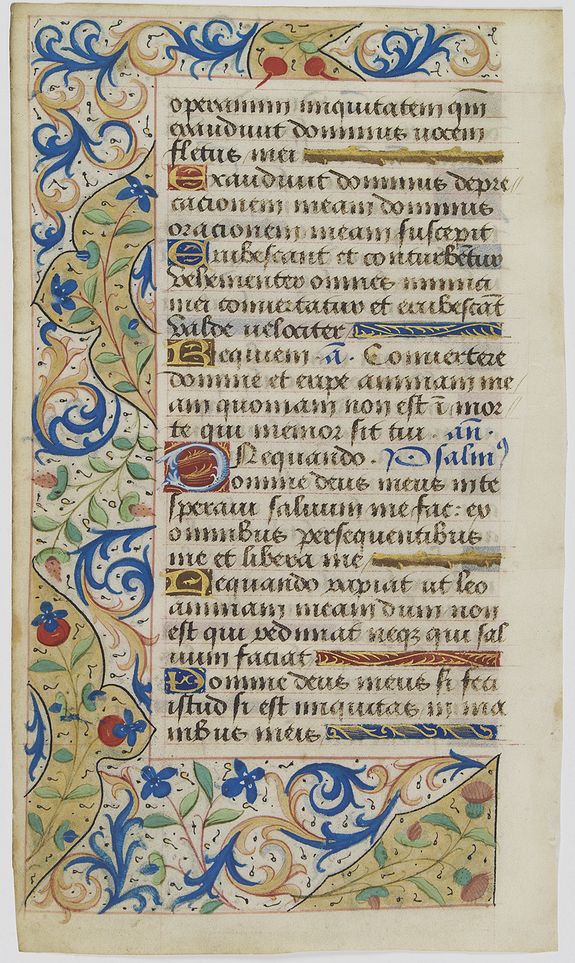 operantur iniquitatem qm̄
exaudivit dominus vocem
fletus mei
Exaudivit dominus depre
cationem meam dominus
orationem meam suscepit
Erubescant et conturbētur
vehementer omnes inimici
mei convertātur et erubescāt
valde velociter
Requiem. a. Convertere
domine et eripe animam me
am quoniam non est ī mor
te qui memor sit tui. añ.
Nequando. Psalm⁹
Domine deus meus in te
speravi salvum me fac: ex
omnibus persequentibus
me et libera me
Nequando rapiat ut leo
animam meam dum non
est qui redimat neqz qui sal
vum faciat
Domine deus meus si feci
istud si est iniquitas in ma
nibus meis